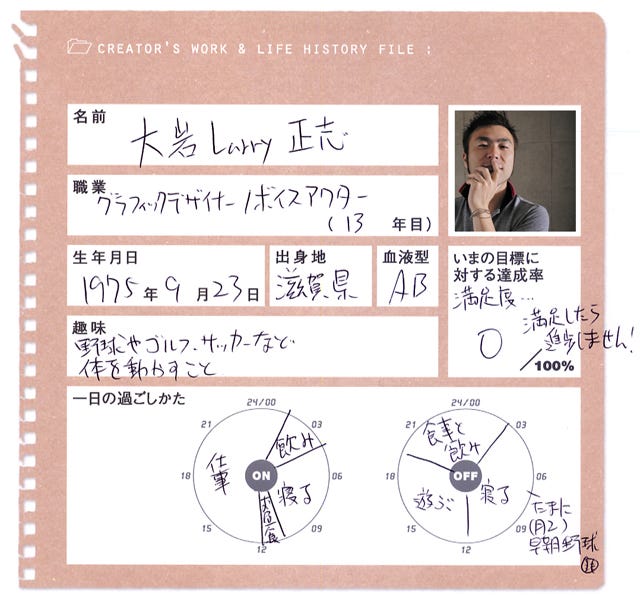 CREATOR'S WORK & LIFE HISTORY FILE :
名前
大岩 Larry 正志
職業
グラフィックデザイナー / ボイスアクター
( 13 年目)
生年月日
1975 年 9 月 23 日
出身地
滋賀県
血液型
AB
いまの目標に
対する達成率
満足度…
0
満足したら
進歩しません!
100%
趣味
野球やゴルフ、サッカーなど
体を動かすこと
一日の過ごしかた
24/00
21
03
18
06
15
09
12
ON
飲み
寝る
お昼食
仕事
24/00
21
03
18
06
15
09
12
OFF
食事と
飲み
寝る
遊ぶ
たまに
(月2)
早朝野球